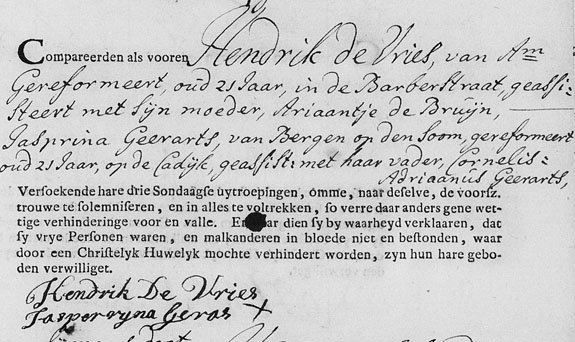 Compareerden als vooren Hendrik de Vries, van Am
Gereformeert, oud 21 Jaar, in de Barberstraat, geassi-
steert met sijn moeder, Ariaantje de Bruijn,
Jasprina Geerarts, van Bergen op den Soom, gereformeert
oud 21 Jaar, op de Cadijk, geassist: met haar vader, Cornelis=
Adriaanus Geerarts,
Versoekende hare drie Sondaagse uytroepingen, omme, naar deselve, de voorsz.
trouwe te solemniseren, en in alles te voltrekken, so verre daar anders gene wet-
tige verhinderinge voor en valle. En daar dien sy by waarheyd verklaaren, dat
sy vrye Personen waren, en malkanderen in bloede niet en bestonden, waar
door een Christelyk Huwelyk mochte verhindert worden, zyn hun hare gebo-
den verwilliget.
Hendrik De Vries
Jasperyna Geras